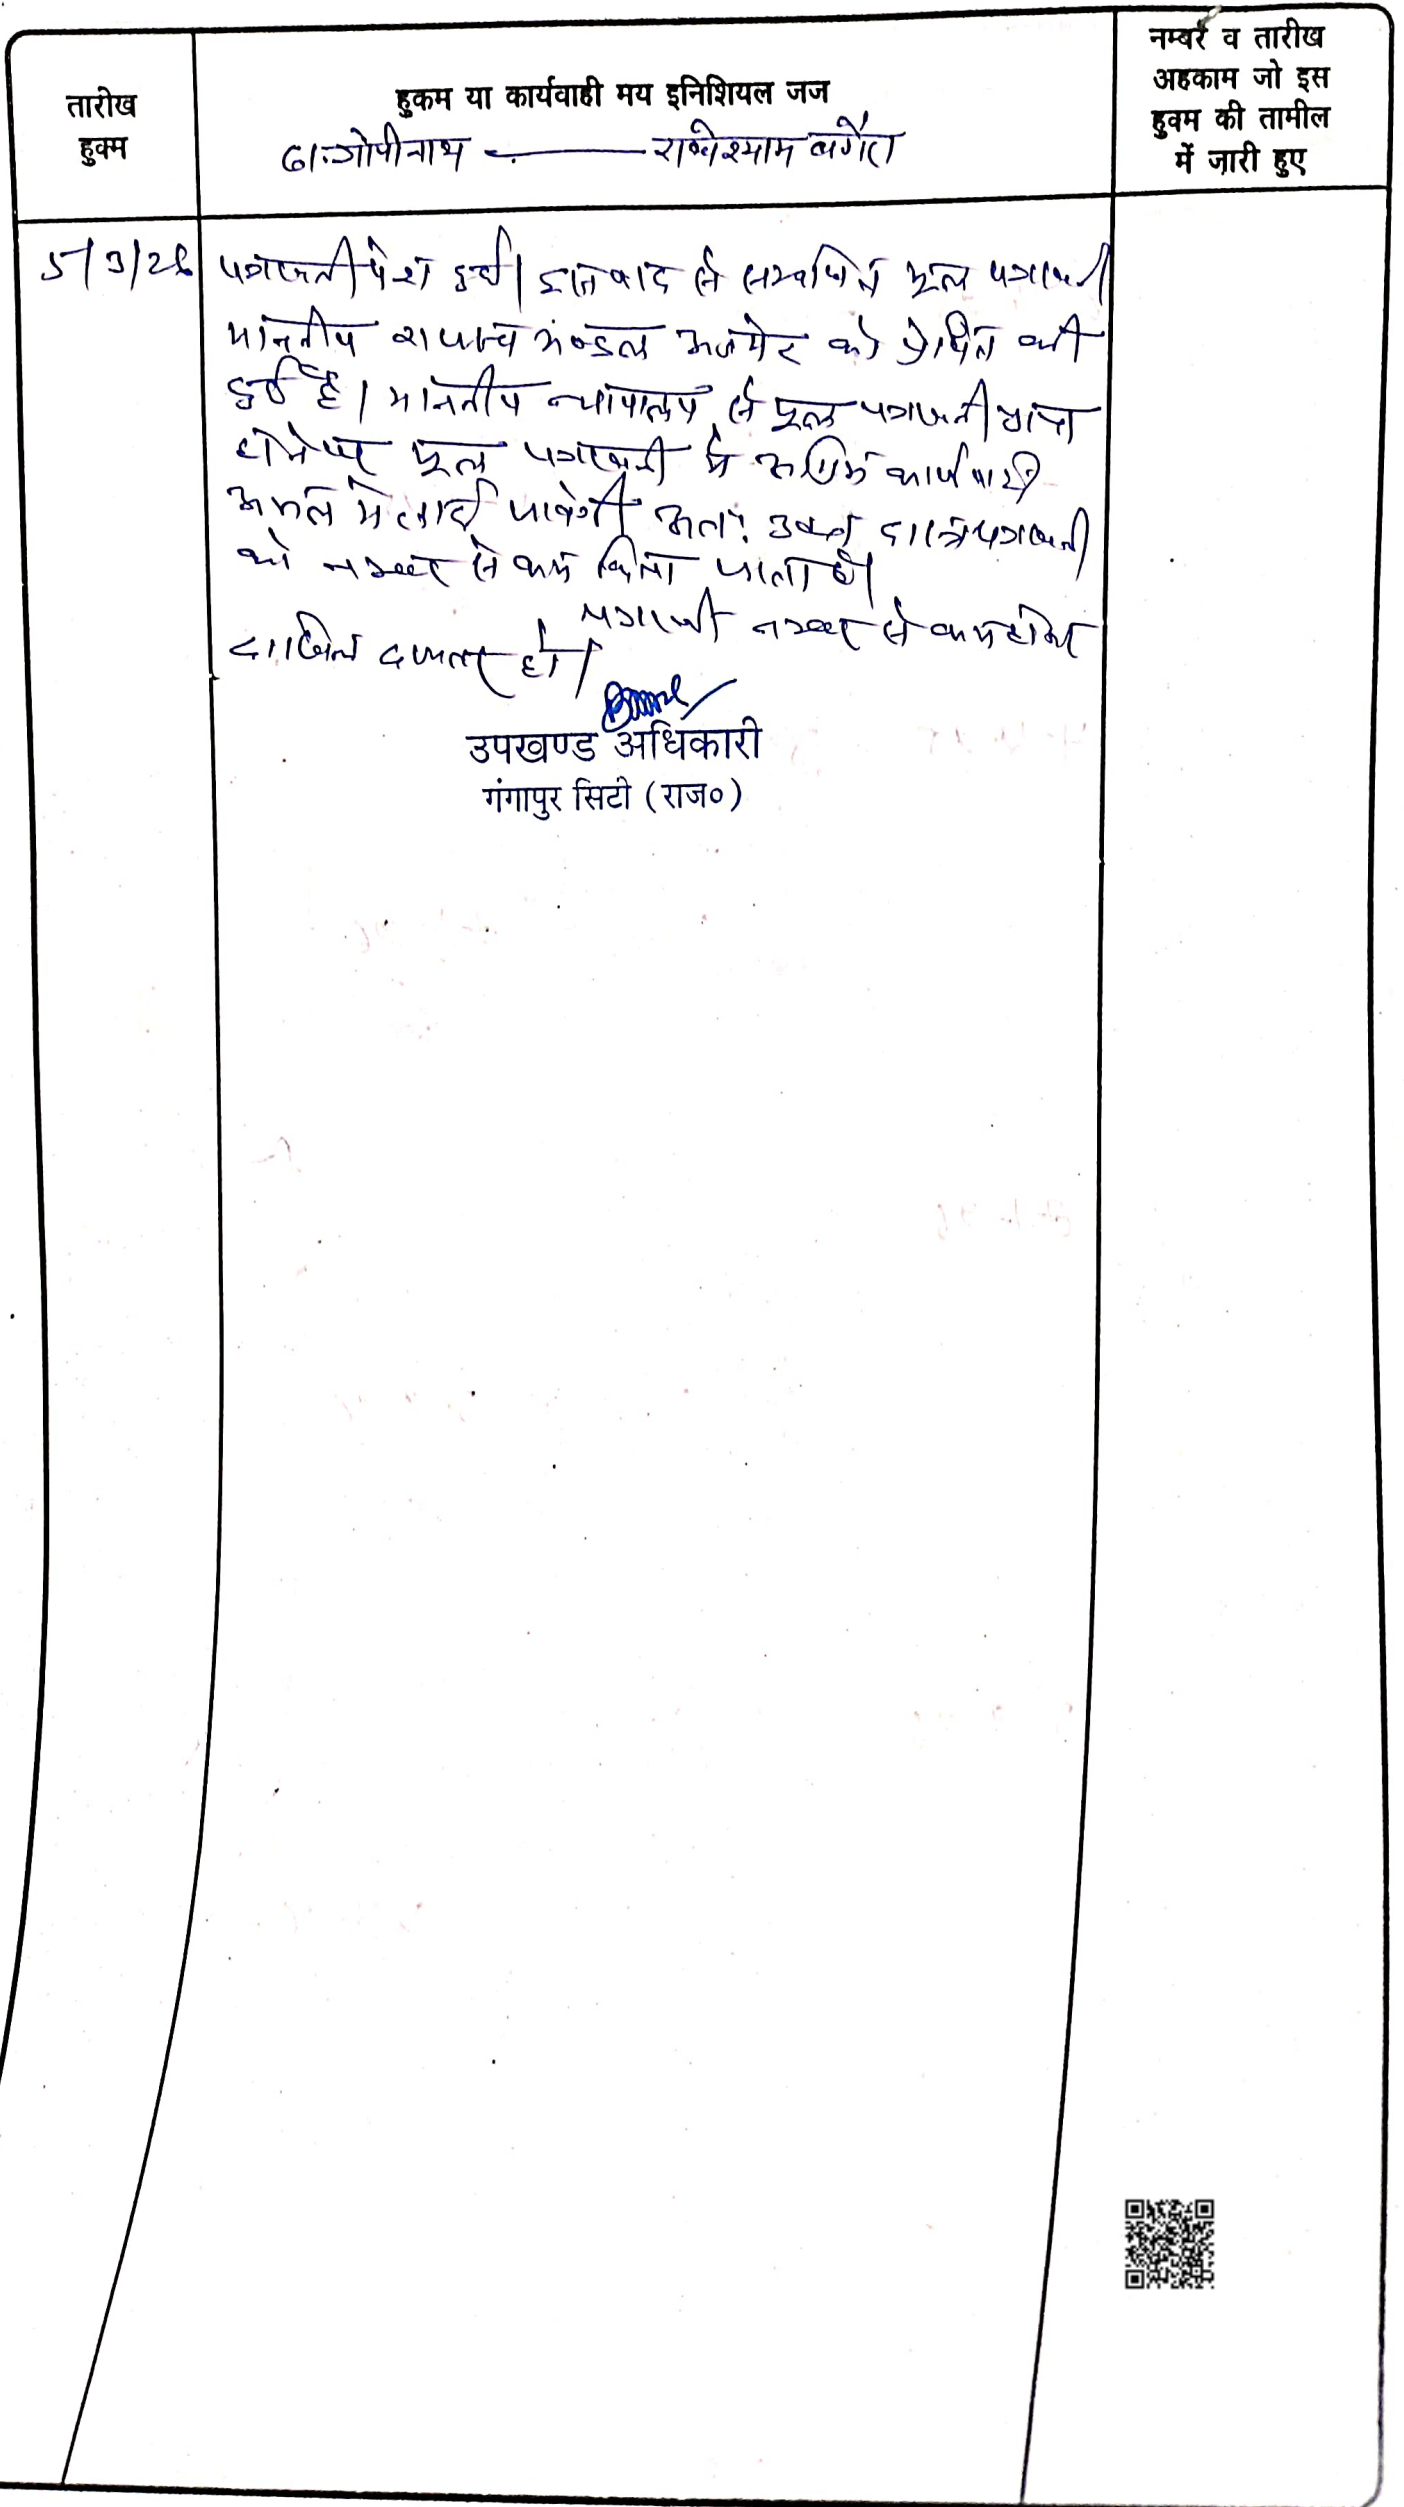 तारीख
हुक्म
हुकम या कार्यवाही मय इनिशियल जज
गोपीनाथ ——— राधेश्याम वगैरा
नम्बर व तारीख
अहकाम जो इस
हुक्म की तामील
में जारी हुए
5/3/26
पत्रावली पेश हुई। वाद से सम्बन्धित मूल पत्रावली
माननीय राजस्व मंण्डल अजमेर को प्रेषित की
हुई है। माननीय न्यायालय से मूल पत्रावली प्राप्त
होनेपर मूल पत्रावली में अग्रिम कार्यवाही
अमल मे लाई जावेगी अतः उक्त पत्रावली
को नम्बर से कम किया जाता है।
पत्रावली नम्बर से कम होकर
दाखिल दफ्तर हो।
उपखण्ड अधिकारी
गंगापुर सिटी (राज०)